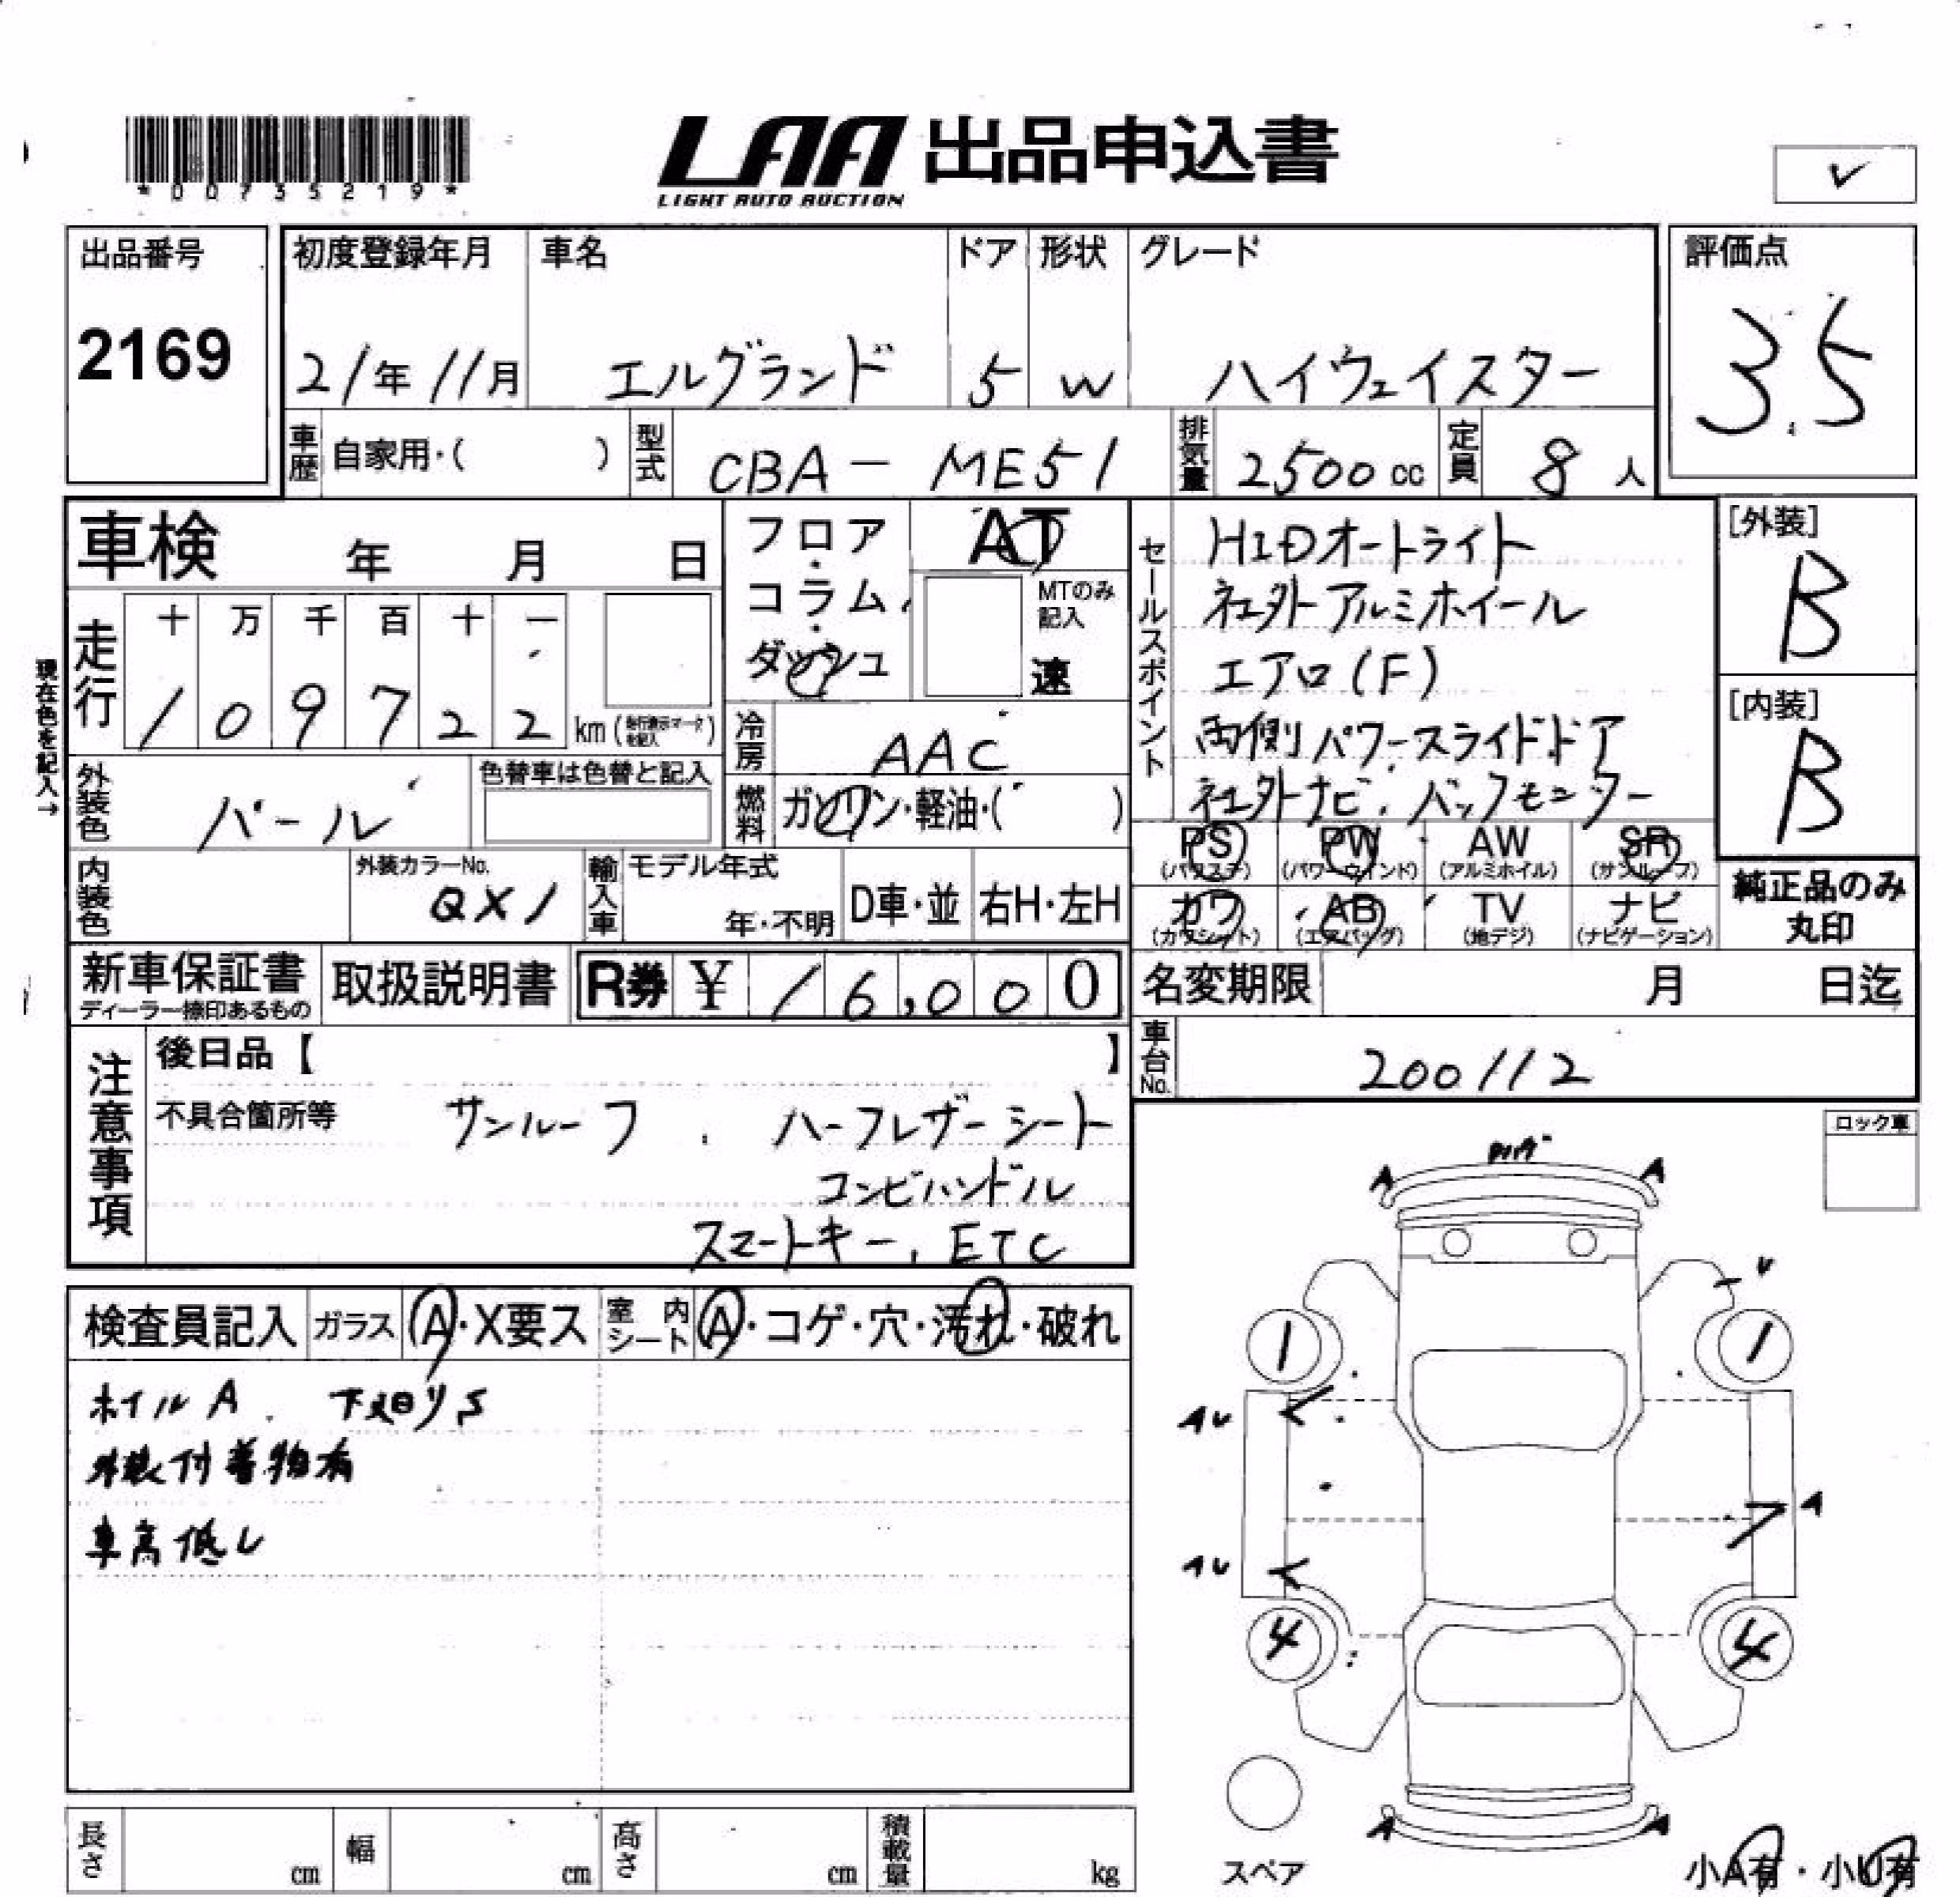 *00735219*
LAA 出品申込書
LIGHT AUTO AUCTION
出品番号
2169
初度登録年月
21年11月
車名
エルグランド
ドア
5
形状
W
グレード
ハイウェイスター
評価点
3.5
車歴
自家用・( )
型式
CBA－ME51
排気量
2500cc
定員
8人
車検 年 月 日
フロア・コラム・ダッシュ
AT
MTのみ記入
速
セールスポイント
HIDオートライト
社外アルミホイール
エアロ(F)
両側パワースライドドア
社外ナビ.バックモニター
[外装]
B
[内装]
B
現在色を記入→
走行
十 万 千 百 十 一
1 0 9 7 2 2 km (走行表示マークを記入)
冷房
AAC
外装色
パール
色替車は色替と記入
燃料
ガソリン・軽油・( )
PS PW AW SR
(パワステ) (パワーウインド) (アルミホイル) (サンルーフ)
カワ AB TV ナビ
(カワシート) (エアバッグ) (地デジ) (ナビゲーション)
純正品のみ
丸印
内装色
外装カラーNo.
QX1
輸入車
モデル年式
年・不明
D車・並
右H・左H
新車保証書
ディーラー捺印あるもの
取扱説明書
R券 ¥ 16,000
名変期限 月 日迄
車台No.
200112
注意事項
後日品【 】
不具合箇所等 サンルーフ . ハーフレザーシート
コンビハンドル
スマートキー, ETC
ロック車
検査員記入
ガラス
A・X要ス
室内シート
A・コゲ・穴・汚れ・破れ
ホイルA. 下廻りS
外装付着物有
車高低し
A A
U
1 1
AU
A
AU
4 4
A A
スペア
小A有・小U有
長さ cm
幅 cm
高さ cm
積載量 kg